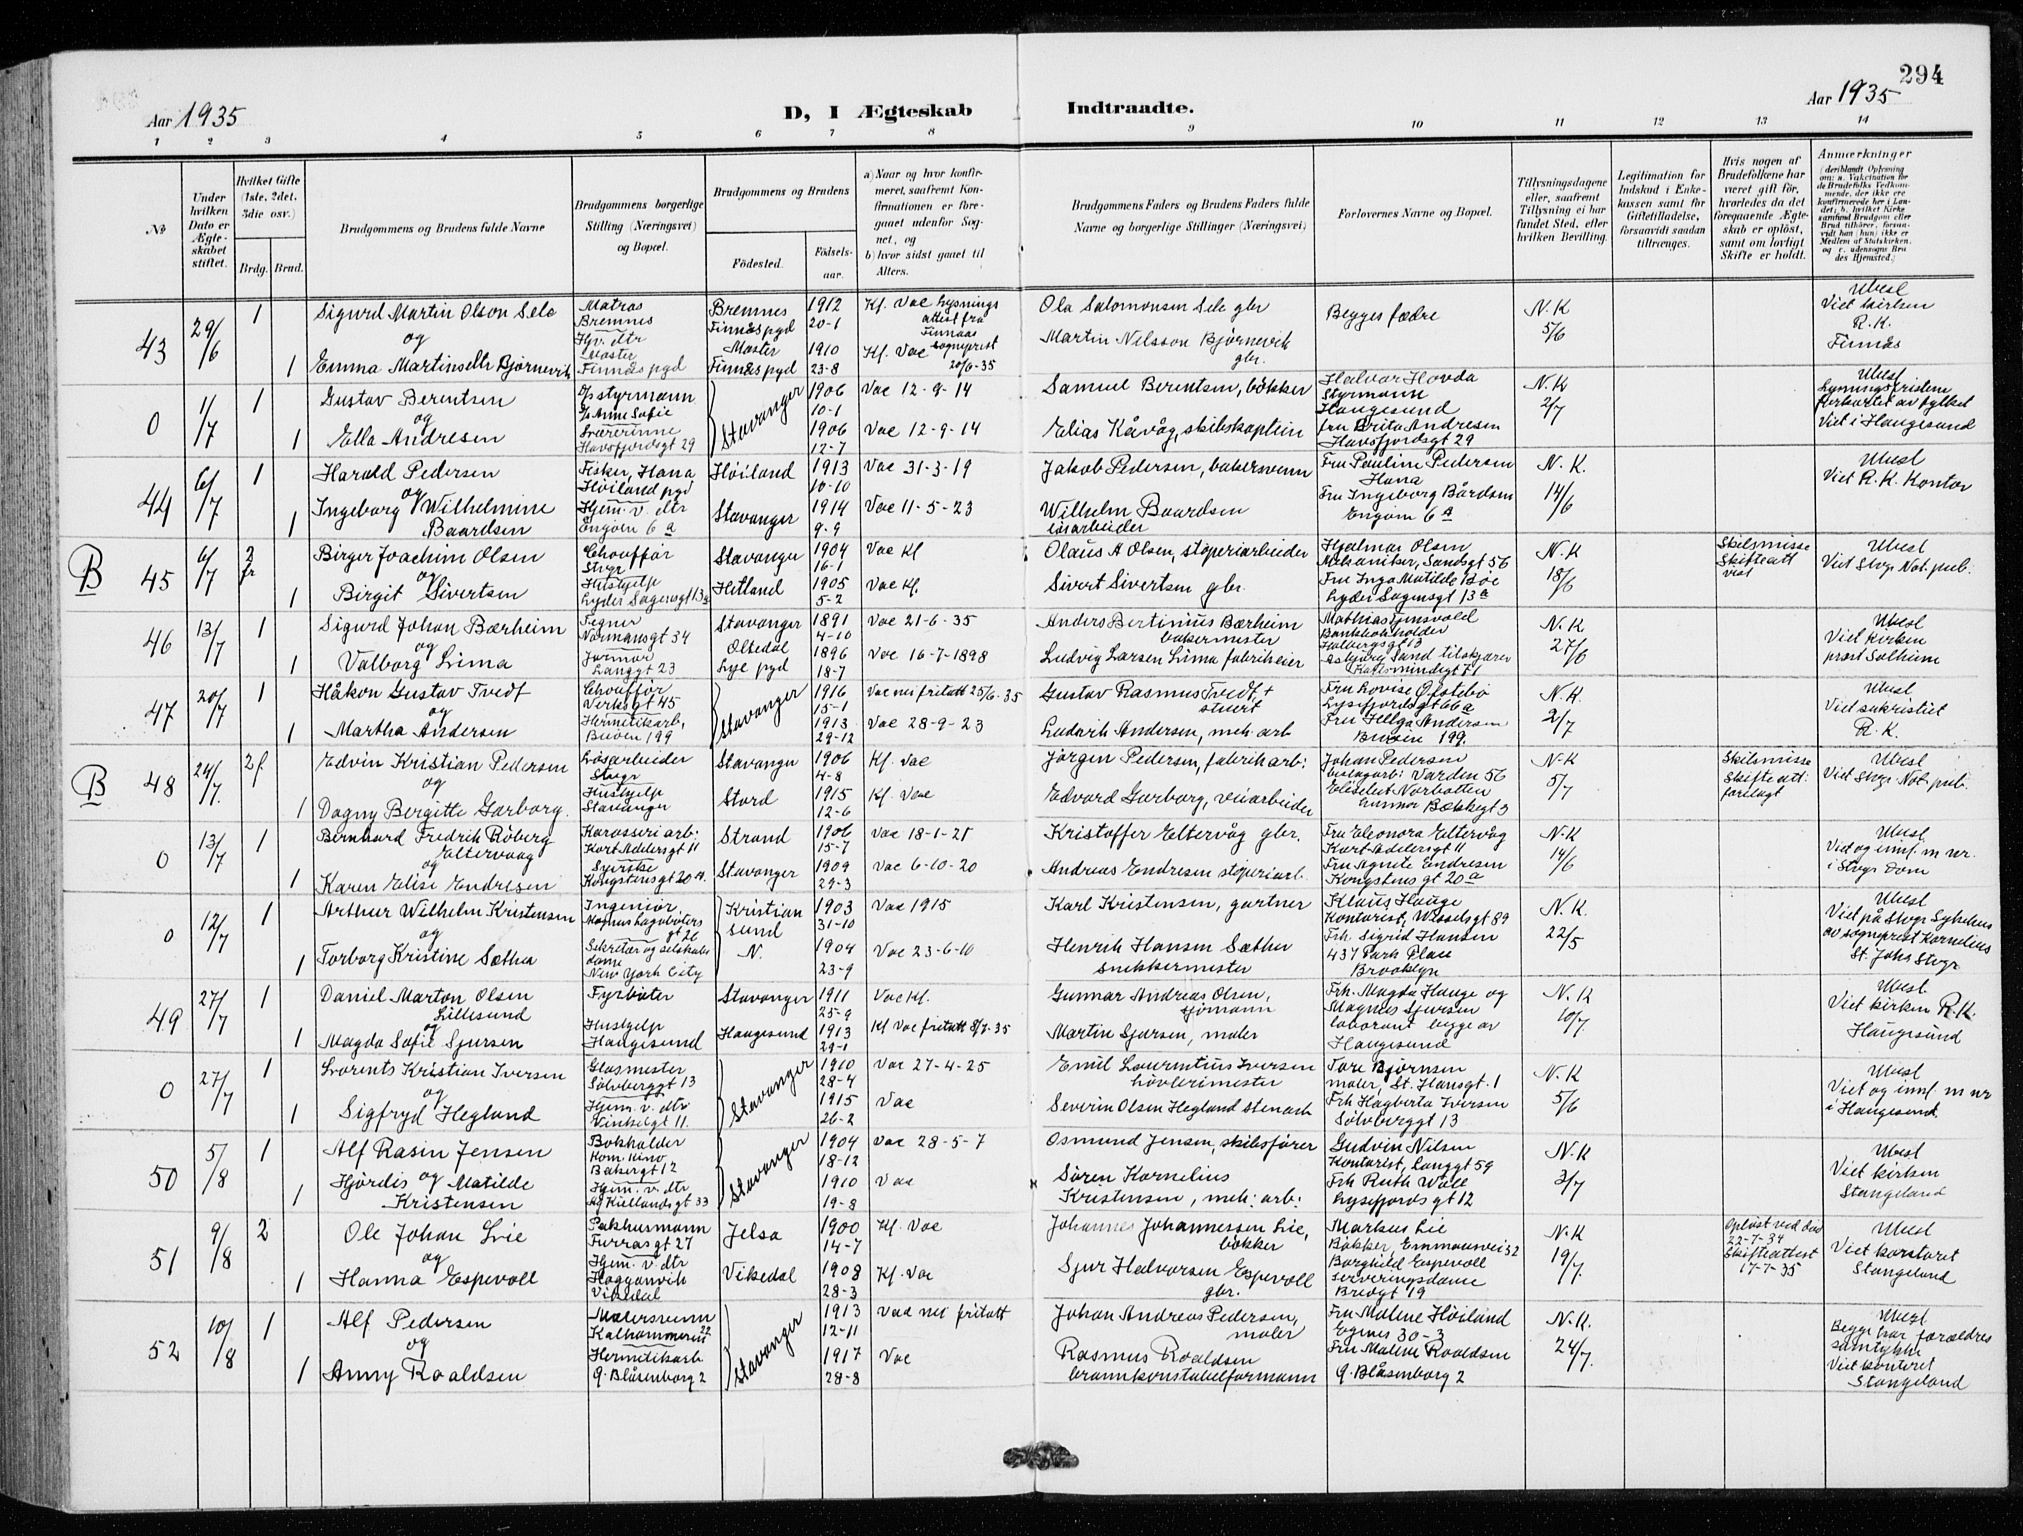 294
Aar 1935
D, I Ægteskab Indtraadte.
Aar 1935
1 2 3 4 5 6 7 8 9 10 11 12 13 14
No
Under hvilken Dato er Ægteskabet stiftet.
Hvilket Gifte (1ste, 2det, 3die osv.)
Brdg. Brud.
Brudgommens og Brudens fulde Navne
Brudgommens borgerlige Stilling (Næringsvei) og Bopæl.
Brudgommens og Brudens
Fødested.
Fødselsaar.
a) Naar og hvor konfirmeret, saafremt Konfirmationen er foregaaet udenfor Sognet, og
b) hvor sidst gaaet til Alters.
Brudgommens Faders og Brudens Faders fulde Navne og borgerlige Stillinger (Næringsvei)
Forlovernes Navne og Bopæl.
Tillysningsdagene eller, saafremt Tillysning ei har fundet Sted, efter hvilken Bevilling.
Legitimation for Indskud i Enkekassen samt for Giftetilladelse, forsaavidt saadan tiltrænges.
Hvis nogen af Brudefolkene har været gift før, hvorledes da det foregaaende Ægteskab er opløst, samt om lovligt Skifte er holdt.
Anmærkninger
43 29/6 1
Sigurd Martin Olson Sele
og
1 Emma Martinsdtr Bjørnevik
Matros
Bremnes
Hjv. dtr
Moster
Finnås pgd
Bremnes
Finnås pgd
Moster
Finnås pgd
1912
20-1
1910
23-8
Kf. Vac Lysnings
attest fra
Finnaas
sogneprest
Kf. Vac 20/6-35
Ola Salomonsen Sele gbr
Martin Nilsson Bjørnevik
gbr.
Begges fædre
N. K
5/6
Ubesl
Viet kirken
R. K.
Finnås
0 1/7 1
Gustav Berentsen
og
1 Ella Andresen
styrmann
Anne Sofie
Havsfjordsgt 29
Stavanger
1906
10-1
1906
12-7
Vac 12-9-14
Vac 12-9-14
Samuel Berentsen, bøkker
Elias Kåvåg, skibskaptein
Halvar Hovda
Styrmann
Haugesund
fru Brita Andresen
Havsfjordsgt 29
N. K
2/7
Ubesl
Viet i Haugesund
44 6/7 1
Harald Pedersen
og
1 Ingeborg Wilhelmine
Baardsen
Fisker, Hana
Høiland pgd
Hjem. v. dtr
Engøen 6 a
Høiland
Stavanger
1913
10-10
1914
9-9
Vac 31-3-19
Vac 11-5-23
Jakob Pedersen, bakersvenn
Wilhelm Baardsen
Fru Pauline Pedersen
Hana
Fru Ingeborg Bårdsen
Engøen 6 a
N. K.
14/6
Ubesl
Viet R. K. Kontor
B 45 6/7 2 fr
Birger Joachim Olsen
og
1 Birgit Sivertsen
Chouffør
Stvgr
Hushjelp
Lyder Sagensgt 13a
Stavanger
Hetland
1904
16-1
1905
5-2
Vac Kf
Vac Kf.
Olaus A Olsen, støperiarbeider
Sivert Sivertsen gbr.
Hjalmar Olsen
Mekaniker, Sandsgt 56
Fru Inga Matilde Bøe
Lyder Sagensgt 13 a
N. K
18/6
Skilsmisse
Skifteatt
vist
Ubesl
Viet Stvgr Not. pub.
46 13/7 1
Sigurd Johan Bærheim
og
1 Valborg Lima
Tegner
Normansgt 34
Langgt 23
Stavanger
Oltedal
Gje pgd
1891
4-10
1896
18-7
Vac 21-6-35
Vac 16-7-1898
Anders Bertinius Bærheim
bakermester
Ludvig Larsen Lima fabrikeier
Mathias Tjensvold
Bankbokholder
Holbergsgt 13
N. K.
27/6
Ubesl
Viet kirken
prest Solheim
47 20/7 1
Håkon Gustav Tvedt
og
1 Martha Andersen
Chouffør
Verksgt 45
Hermetikarb,
Buøen 199
Stavanger
1916
15-1
1913
29-12
Vac nei fritatt 25/6-35
Vac 28-9-23
Gustav Rasmus Tvedt, +
stuert
Ludvik Andersen, mek. arb
Fru Lovise Øfstebø
Lysefjordsgt 66 a
Fru Helga Andersen
Buøen 199.
N. K.
2/7
Ubesl
Viet sakristiet
R. K.
B 48 24/7. 2 f
Edvin Kristian Pedersen
og
1 Dagny Bergitte Garborg.
Løsarbeider
Stvgr
Hushjelp
Stavanger
Stavanger
Stord
1906
4-8
1915
12-6
Kf. Vac
Kf. Vac
Jørgen Pedersen, fabrikarb:
Edvard Garborg, veiarbeider
Johan Pedersen
Varden 56
Gunnar Bækkegt 3
N-K
5/7
Skilsmisse
Skifteatt:
forelagt
Ubesl
Viet Stvgr Not. pub.
0 13/7 1
Bernhard Fredrik Røberg
Eltervaag
og
1 Karen Elise Endresen
Karosseri arb:
Kort Adelersgt 11
Syerske
Kongstensgt 20 a.
Strand
Stavanger
1906
15-7
1909
29-3
Vac 18-1-21
Vac 6-10-20
Kristoffer Eltervåg gbr.
Andreas Endresen støperiarb.
Fru Eleonora Eltervåg
Kort Adelersgt 11
Fru Agnete Endresen
Kongstens gt 20 a
N-K
14/6
Ubesl
Viet og innf. m nr.
i Stvgr Dom
0 12/7 1
Arthur Wilhelm Kristensen
og
1 Torborg Kristine Sæther
Ingeniør,
Magnus Lagabøters
gt 26
Sekretær og selskabs
dame
New York City
Kristian
sund
N.
1903
31-10
1904
23-9
Vac 1915
Vac 23-6-10
Karl Kristensen, gartner
Henrik Hansen Sæther
snekkermester
Klaus Hauge
Kontorist, Wesselsgt 89
Frk. Sigrid Hansen
437 Park Place
Brooklyn
N. K.
22/5
Ubesl
Viet på Stvgr Sykehus
av sogneprest Kornelius
St. Johs Stvgr
49 27/7 1
Daniel Marton Olsen
Lillesund
og
1 Magda Sofie Sjursen
Fyrbøter
Hushjelp
Haugesund
Stavanger
Haugesund
1911
25-9
1913
29-1
Vac Kf.
Kf Vac fritatt 8/7-35
Gunnar Andreas Olsen,
sjømann
Martin Sjursen, maler
Frk. Magda Hauge og
Magnus Sjursen
laborant begge av
Haugesund
N. K
10/7.
Ubesl.
Viet kirken R. K.
Haugesund
0 27/7 1
Lorents Kristian Iversen
og
1 Sigfryd Hegland
Glasmester
Sølvberggt 13
Hjem. v. dtr
Vinkelgt 11.
Stavanger
1910
28-4
1915
26-2
Vac 27-4-25
Vac
Emil Laurentius Iversen
høvlerimester
Severin Olsen Hegland stenarb
Tore Bjørnsen
maler, St. Hansgt. 1
Frk Hagberta Iversen
Sølvberggt 13
N. K
5/6
Ubesl
Viet og innf. m nr
i Haugesund.
50 5/8 1
Alf Rasin Jensen
og
1 Hjørdis Matilde
Kristensen
Bokholder
Kom. kino
Bakergt 12
Hjem. v. dtr
Ag Kiellandsgt 33
Stavanger
1904
18-12
1910
19-8
Vac 28-5-7
Vac
Osmund Jensen, skibsfører
Søren Kornelius
Kristensen, mek: arb:
Gudvin Nilsen
Kontorist, Langgt 59
Frk Ruth Wall
Lysefjords gt 12
N. K
3/7
Ubesl
Viet kirken
Stangeland
51 9/8 2
Ole Johan Lie
og
1 Hanna Espevoll
Pakhusmann
Furrasgt 27
Hjem. v. dtr
Hogganvik
Vikedal
Jelsa
Vikedal
1900
14-7
1908
28-3
Kf. Vac
Kf. Vac
Johannes Johannessen Lie,
bøkker
Sjur Halvorsen Espevoll
gbr.
Markus Lie
Bøkker, Emmausvei 32
Borghild Espevoll
serveringsdame
Bredgt 19
N. K
19/7.
Opløst ved død
22-7-34
Skifteattest
17-7-35
Ubesl
Viet kontoret
Stangeland
52 10/8 1
Alf Pedersen
og
1 Anny Roaldsen
Malersvenn
Kalhammervei 22
Hermetikarb
g. Blåsenborg 2
Stavanger
1913
12-11
1917
28-8
Vac nei fritatt
Vac
Johan Andreas Pedersen,
maler
Rasmus Roaldsen
brannkonstabelformann
Fru Malene Høiland
Egenes 30-3
Fru Malene Roaldsen
g. Blåsenborg 2
N. K.
24/7.
Ubesl
Begge har foreldres
samtykke
Viet kontoret
Stangeland